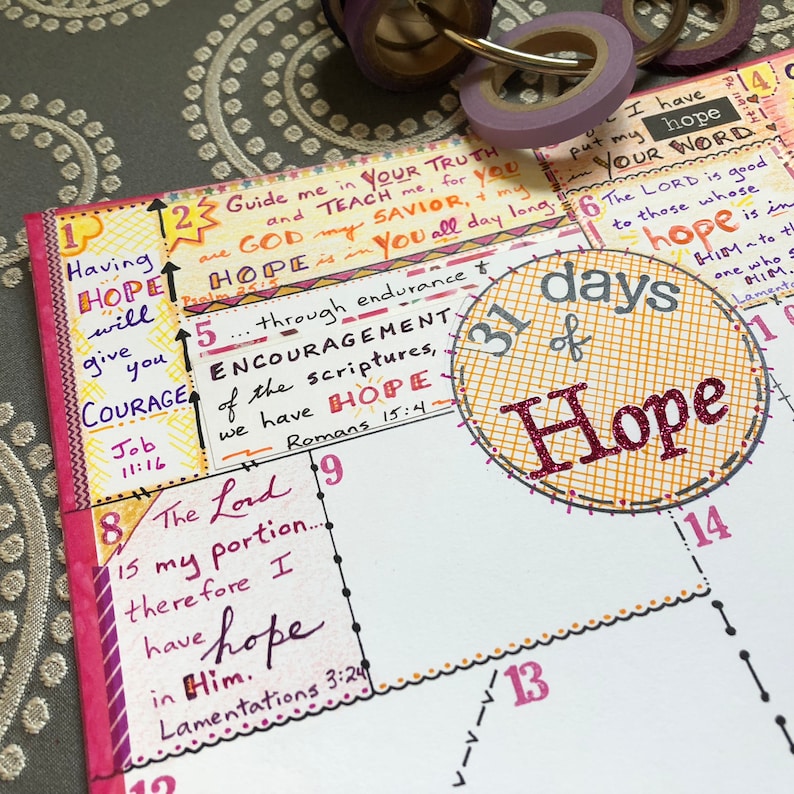 1
Having
HOPE
will
give you
COURAGE
Job
11:16
2
Guide me in YOUR TRUTH
and TEACH me, for YOU
are GOD my SAVIOR, + my
HOPE is in YOU all day long.
Psalm 25:5
4
I have
put my hope
in YOUR WORD
5
...through endurance +
ENCOURAGEMENT
of the scriptures,
we have HOPE
Romans 15:4
6
The LORD is good
to those whose
hope is in
HIM ~ to the
one who s
HIM.
Lamentat
31 days
of
Hope
8
The Lord
is my portion...
therefore I
have hope
in Him.
Lamentations 3:24
9
1
14
13
12